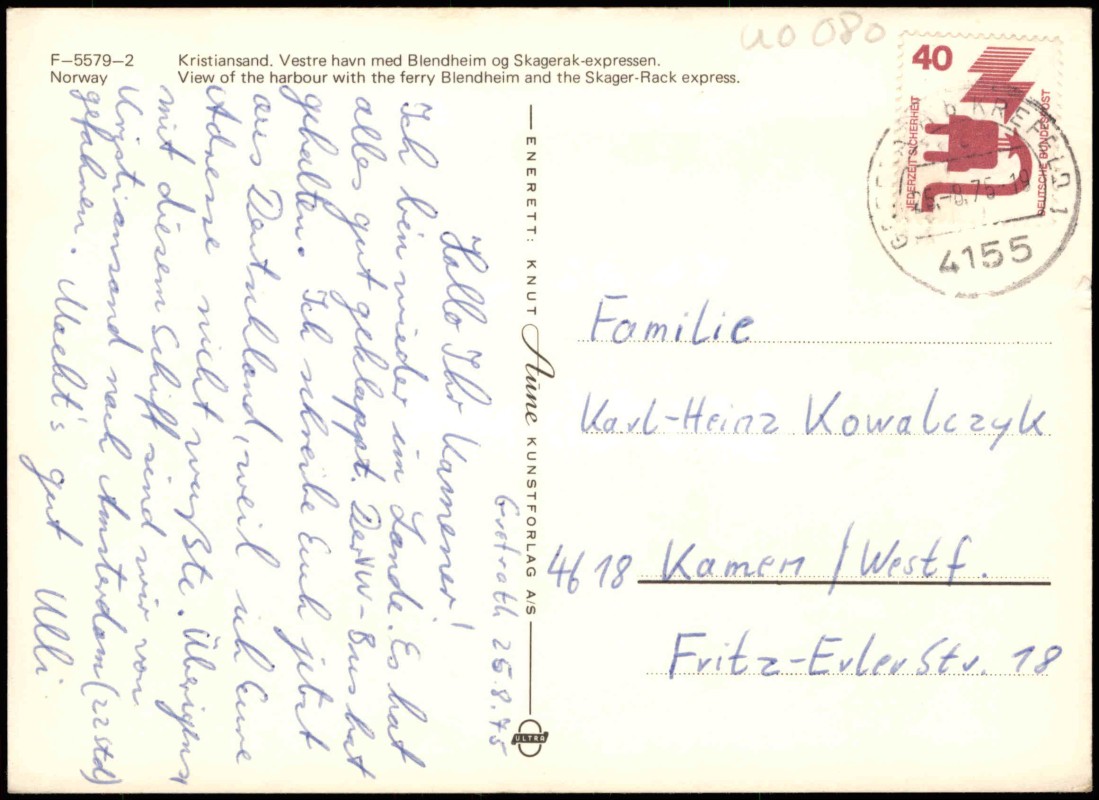 F–5579–2 Kristiansand. Vestre havn med Blendheim og Skagerak-expressen.
Norway View of the harbour with the ferry Blendheim and the Skager-Rack express.
Grefrath 25.8.75
Hallo Ihr Kamener!
Ich bin wieder im Lande. Es hat
alles gut geklappt. Der VW-Bus hat
gehalten. Ich schreibe Euch jetzt
aus Deutschland, weil ich Eure
Adresse nicht wußte. Übrigens
mit diesem Schiff sind wir von
Kristiansand nach Amsterdam (22 Std)
gefahren. Macht's gut Ulli
ENERETT: KNUT Aune KUNSTFORLAG A/S
ULTRA
40
JEDERZEIT SICHERHEIT
DEUTSCHE BUNDESPOST
KREFELD 1
25.-8.75-19
4155
Familie
Karl-Heinz Kowalczyk
4618 Kamen / Westf.
Fritz-Erler Str. 18